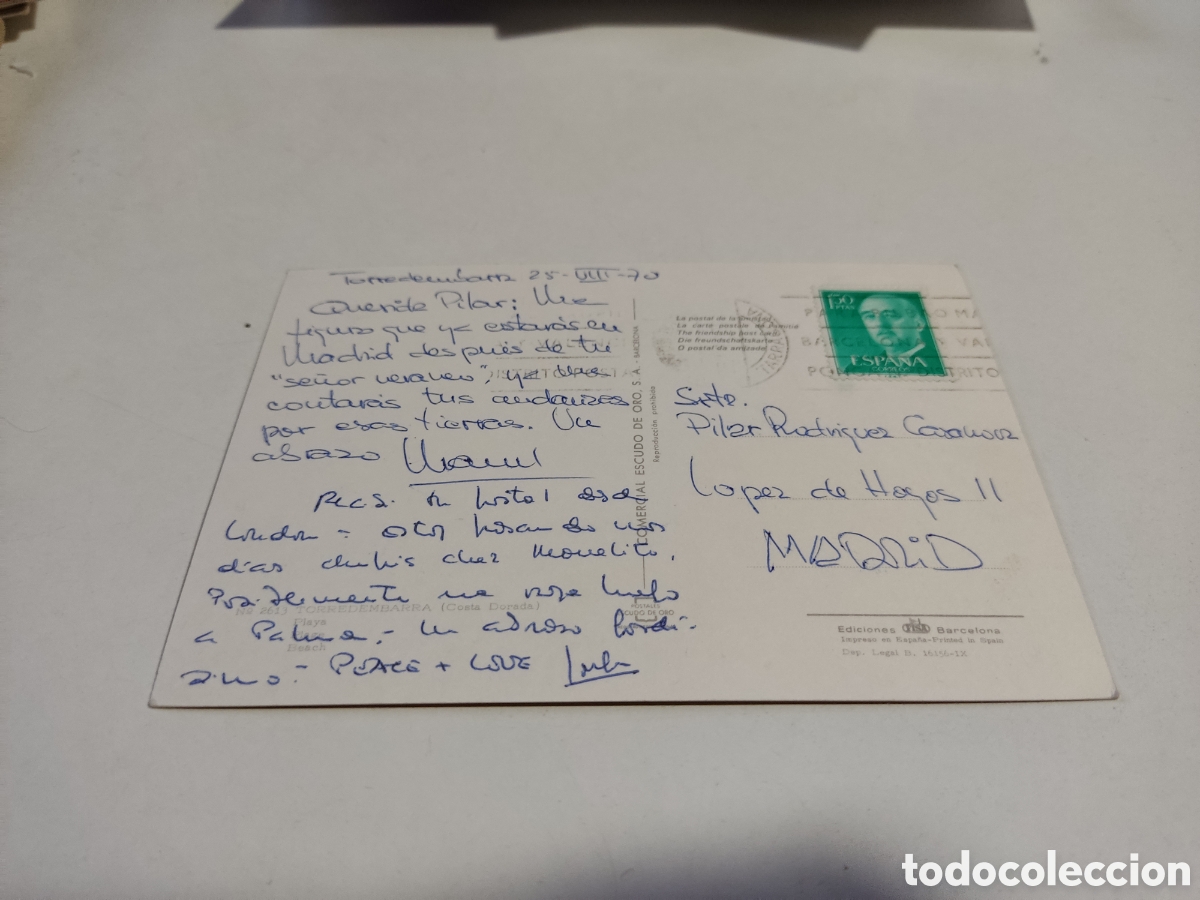 Torredembarra 25-VIII-70
Querida Pilar: Me
figuro que ya estarás en
Madrid después de tu
"señor veraneo", ya me
contarás tus andanzas
por esas tierras. Un
abrazo Manuel
postal desde
London - estoy pasando unos
días chez Monolito.
Posiblemente me vaya luego
a Palma - Un abrazo cordi-
simo - PEACE + LOVE
No 2613 TORREDEMBARRA (Costa Dorada)
Playa
Beach
COMERCIAL ESCUDO DE ORO, S.A. - BARCELONA
Reproducción prohibida
POSTALES
ESCUDO DE ORO
La postal de la
La carte postale
The friendship post card
Die freundschaftskarte
O postal da amizade
50
PTAS
ESPAÑA
CORREOS
DISTRITO POSTAL
Srta.
Pilar Rodriguez Casanova
Lopez de Hoyos 11
MADRID
Ediciones Barcelona
Impreso en España-Printed in Spain
Dep. Legal B. 16156-IX
todocoleccion